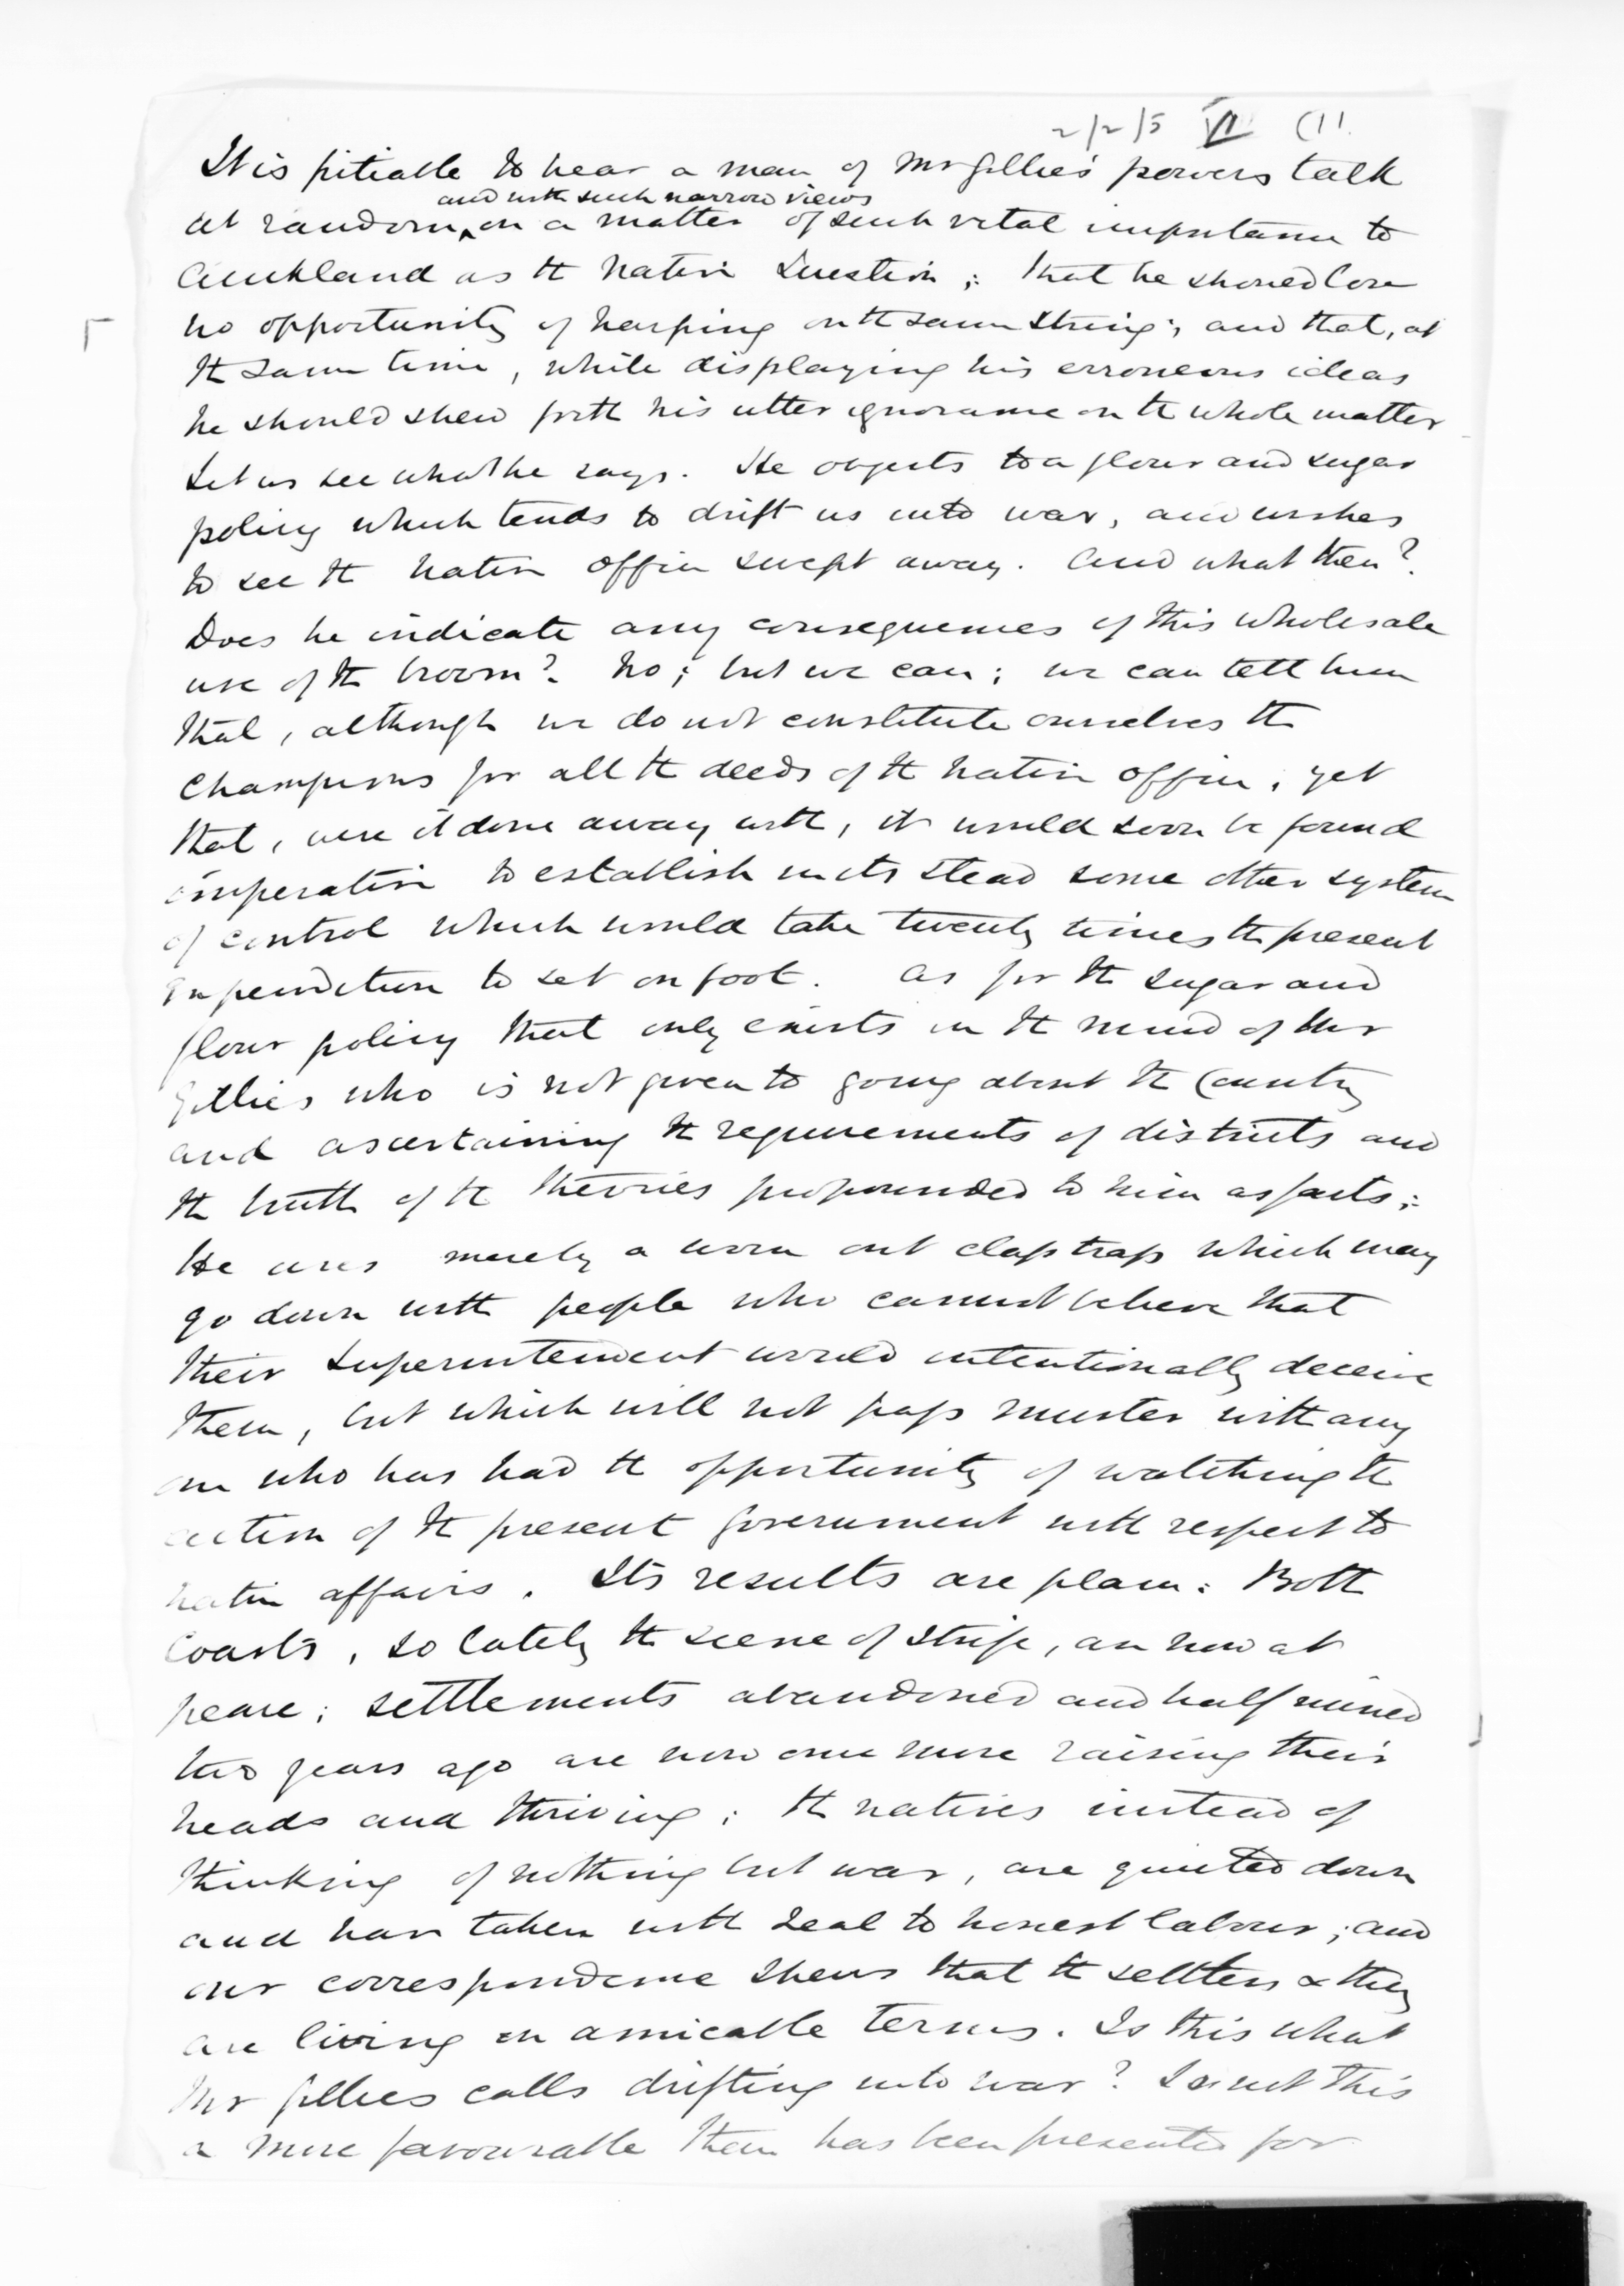 2/2/5 VI (11
It is pitiable to hear a man of Mr Gillies' powers talk
and with such narrow views
at random on a matter of such vital importance to
Auckland as the Native Question; that he should lose
no opportunity of harping on the same string; and that, at
the same time, while displaying his erroneous ideas
he should shew forth his utter ignorance on the whole matter
Let us see what he says. He objects to a flour and sugar
policy which tends to drift us into war, and wishes
to see the Native Office swept away. And what then?
Does he indicate any consequences of this wholesale
use of the broom? No; but we can; we can tell him
that, although we do not constitute ourselves the
champions for all the deeds of the Native Office, yet
that, were it done away with, it would soon be found
imperative to establish in its stead some other system
of control which would take twenty times the present
expenditure to set on foot. As for the sugar and
flour policy that only exists in the mind of Mr
Gillies who is not given to going about the Country
and ascertaining the requirements of districts and
the truth of the theories propounded to him as facts;
He uses merely a worn out clap trap which may
go down with people who cannot believe that
their Superintendent would intentionally deceive
them, but which will not pass muster with any
one who has had the opportunity of watching the
action of the present Government with respect to
native affairs. Its results are plain: Both
Coasts, so lately the scene of strife, are now at
peace; settlements abandoned and half ruined
two years ago are now once more raising their
heads and thriving; the natives instead of
thinking of nothing but war, are quieted down
and have taken with zeal to honest labour; and
our correspondence shews that the settlers & they
are living on amicable terms. Is this what
Mr Gillies calls drifting into war? Is not this
a more favourable than has been presented for